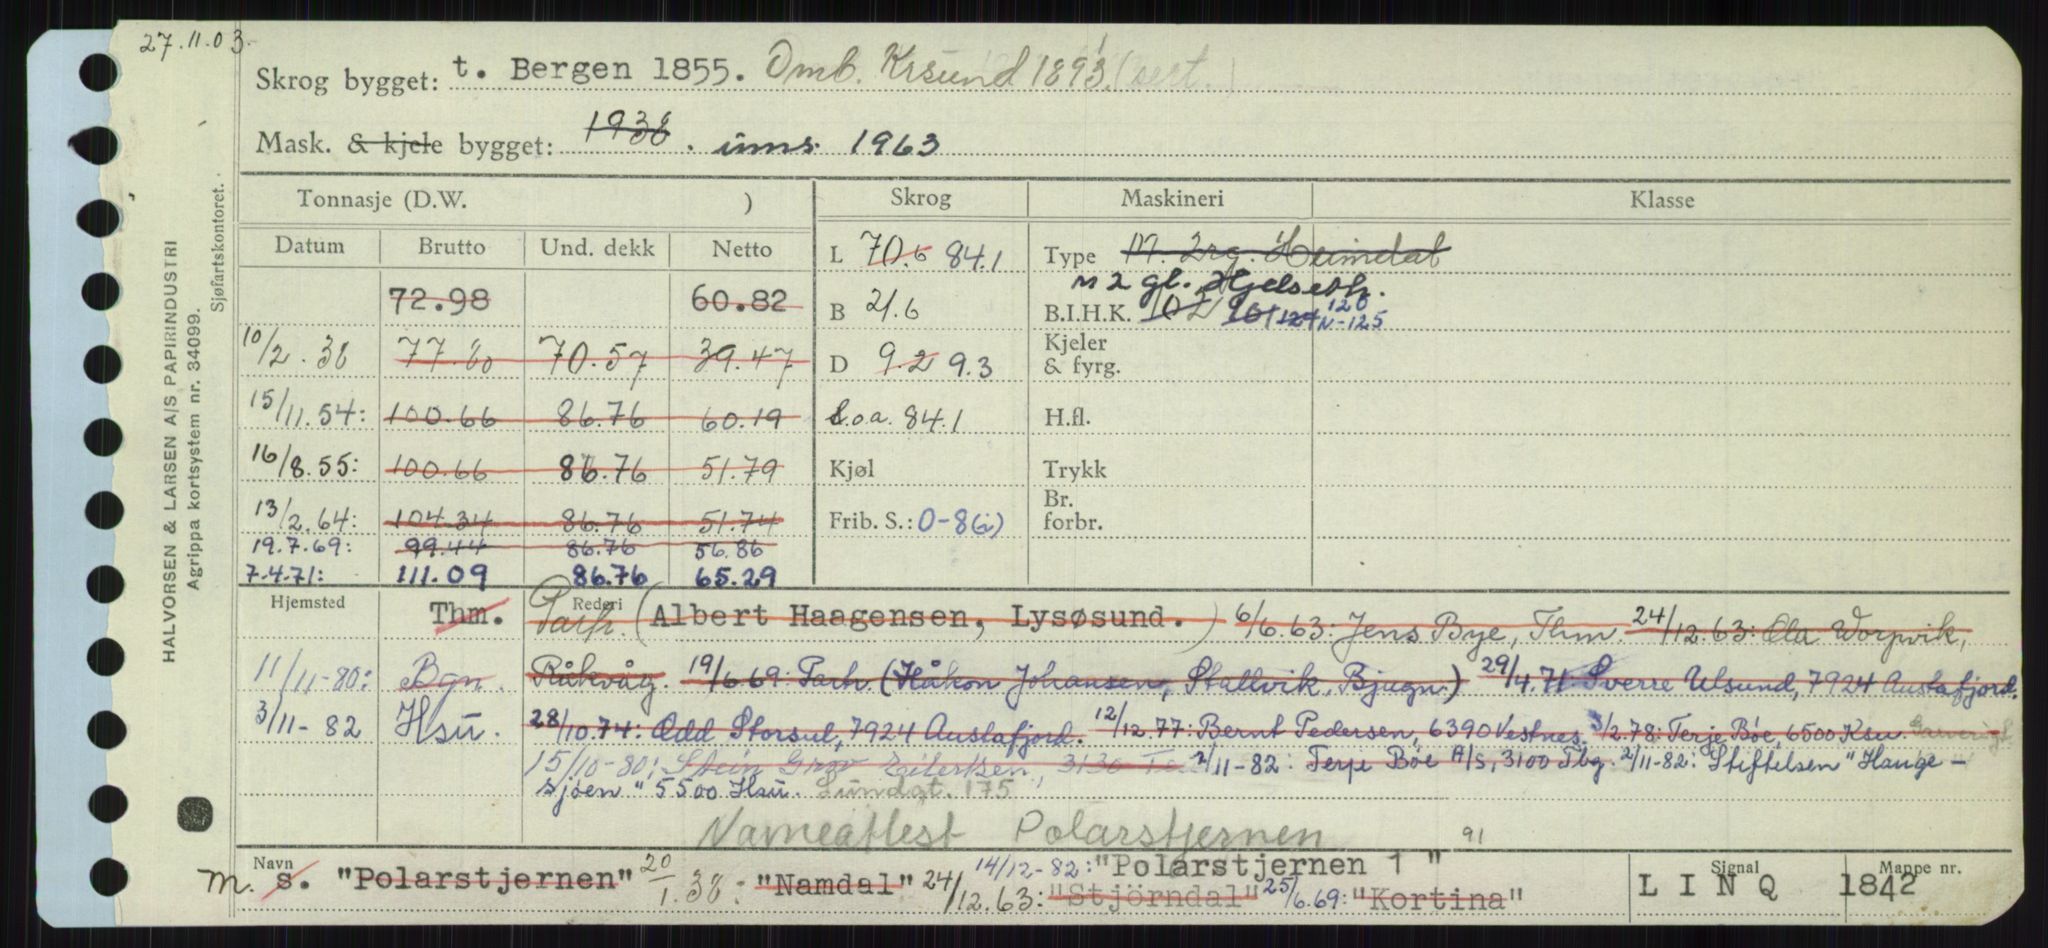 27.11.03.
Skrog bygget: t. Bergen 1855. Omb. Krsund 1893 (sert.)
Mask. & kjele bygget: 1938. inns. 1963
HALVORSEN & LARSEN A/S PAPIRINDUSTRI
Agrippa kortsystem nr. 34099.
Sjøfartskontoret.
Tonnasje (D.W. ) Skrog Maskineri Klasse
Datum Brutto Und. dekk Netto
L 70.6 84.1 Type M. 2rg. Heimdal
M 2 gl. Hjelseth.
72.98 60.82 B 21.6 B.I.H.K. 102 101 124 120 N-125
10/2.38 77.80 70.57 39.47 D 9.2 9.3 Kjeler & fyrg.
15/11.54: 100.66 86.76 60.19 L.o.a. 84.1 H.fl.
16/8.55: 100.66 86.76 51.79 Kjøl Trykk
13/2.64: 104.34 86.76 51.74 Frib. S.: 0-8(i) Br. forbr.
19.7.69: 99.44 86.76 56.86
7-4.71: 111.09 86.76 65.29
Hjemsted Thm. Rederi Partr. (Albert Haagensen, Lysøsund.) 6/6.63: Jens Bye, Thm. 24/12.63: Ola Worpvik,
11/11-80: Bgn. Råkvåg. 19/6 69: Parh. (Håkon Johansen, Stallvik, Bjugn.) 29/4.71 Sverre Ulsund, 7924 Austafjord.
3/11-82 Hsu. 28/10.74: Odd Storsul, 7924 Austafjord. 12/12.77: Bernt Pedersen, 6390 Vestnes. 3/2.78: Terje Bøe, 6500 Ksu.
15/10-80: Stein Eilertsen, 3130 2/11-82: Terje Bøe A/S, 3100 Tbg. 2/11-82: Stiftelsen "Hauge-
sjøen" 5500 Hsu. Lundgt. 175
Navneattest Polarstjernen 91
Navn M. s. "Polarstjernen" 20/1.38: "Namdal" 24/12.63: "Stjördal" 25/6.69: "Kortina"
14/12-82: "Polarstjernen 1"
Signal LINQ
Mappe nr. 1842